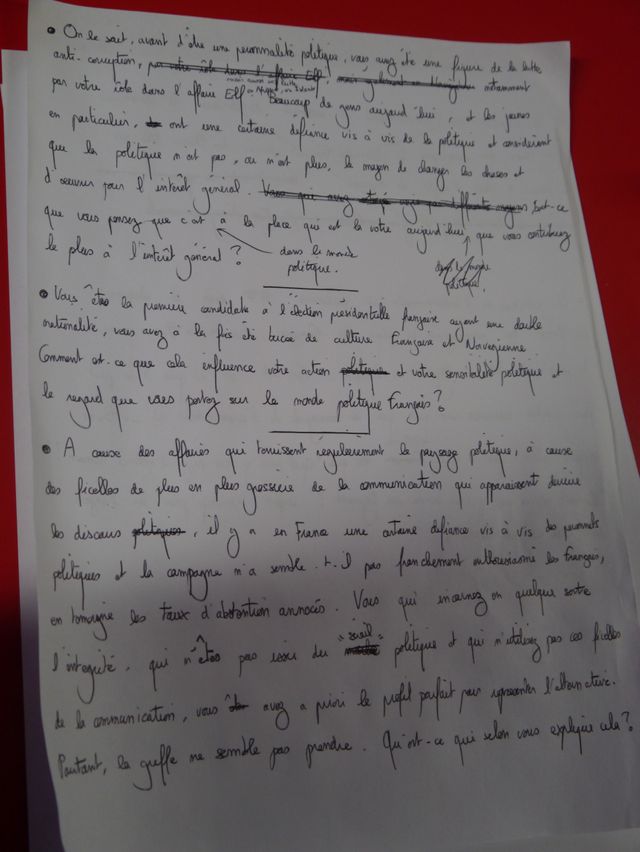 • On le sait, avant d'être une personnalité politique, vous avez été une figure de la lutte
anti-corruption, par votre rôle dans l'affaire Elf, notamment
par votre rôle dans l'affaire Elf. Beaucoup de gens aujourd'hui, et les jeunes
en particulier, ont une certaine défiance vis à vis de la politique et considèrent
que la politique n'est pas, ou n'est plus, le moyen de changer les choses et
d'oeuvrer pour l'intérêt général. Est-ce
que vous pensez que c'est à la place qui est la votre aujourd'hui, que vous contribuez
le plus à l'intérêt général ?
dans le monde
politique.
dans le monde
politique.
• Vous êtes la première candidate à l'élection présidentielle française ayant une double
nationalité, vous avez à la fois été bercée de culture Française et Norvégienne
Comment est-ce que cela influence votre action politique et votre sensibilité politique et
le regard que vous portez sur le monde politique Français ?
• A cause des affaires qui ternissent régulièrement le paysage politique, à cause
des ficelles de plus en plus grossière de la communication qui apparaissent derrière
les discours politiques, il y a en France une certaine défiance vis à vis des
politiques et la campagne n'a semble-t-il pas franchement enthousiasmé les français,
en témoigne les taux d'abstention annoncés. Vous qui incarnez en quelque sorte
l'intégrité, qui n'êtes pas issu du "sérail" politique et qui n'utilisez pas ces ficelles
de la communication, vous avez a priori le profil parfait pour représenter l'alternative.
Pourtant, la greffe ne semble pas prendre. Qu'est-ce qui selon vous explique cela ?